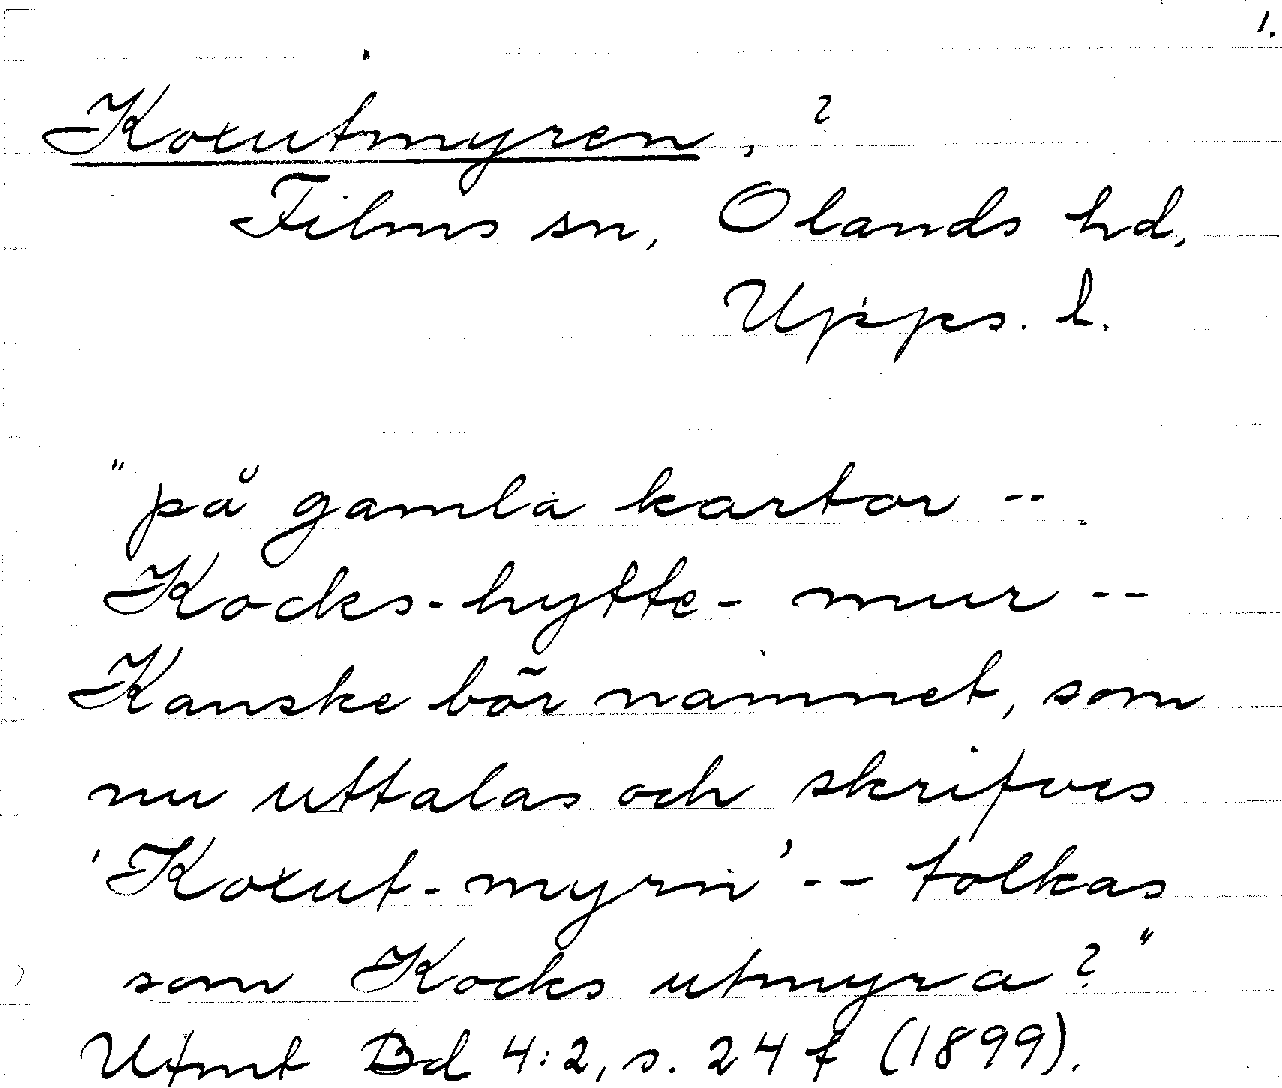 1.
Koxutmyren, ?
Films sn, Olands hd,
Upps. l.
"på gamla kartor --
Kocks-hytte-mur --
Kanske bör namnet, som
nu uttalas och skrifves
'Koxut-myrn' -- tolkas
som Kocks utmyra?"
Utmt Bd 4:2, s. 24 f (1899).